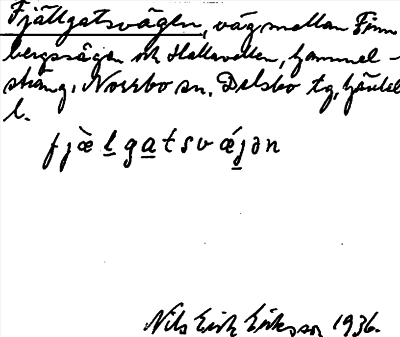 Fjällgatsvägen, väg mellan Finn
bergssågen och Hallavallen, Gammel-
sträng, Norrbo sn, Delsbo tg, Hälsl
l.
fjæ̀l̲ga̲tsvǽj̲ən
Nils Erik Eriksson 1936.